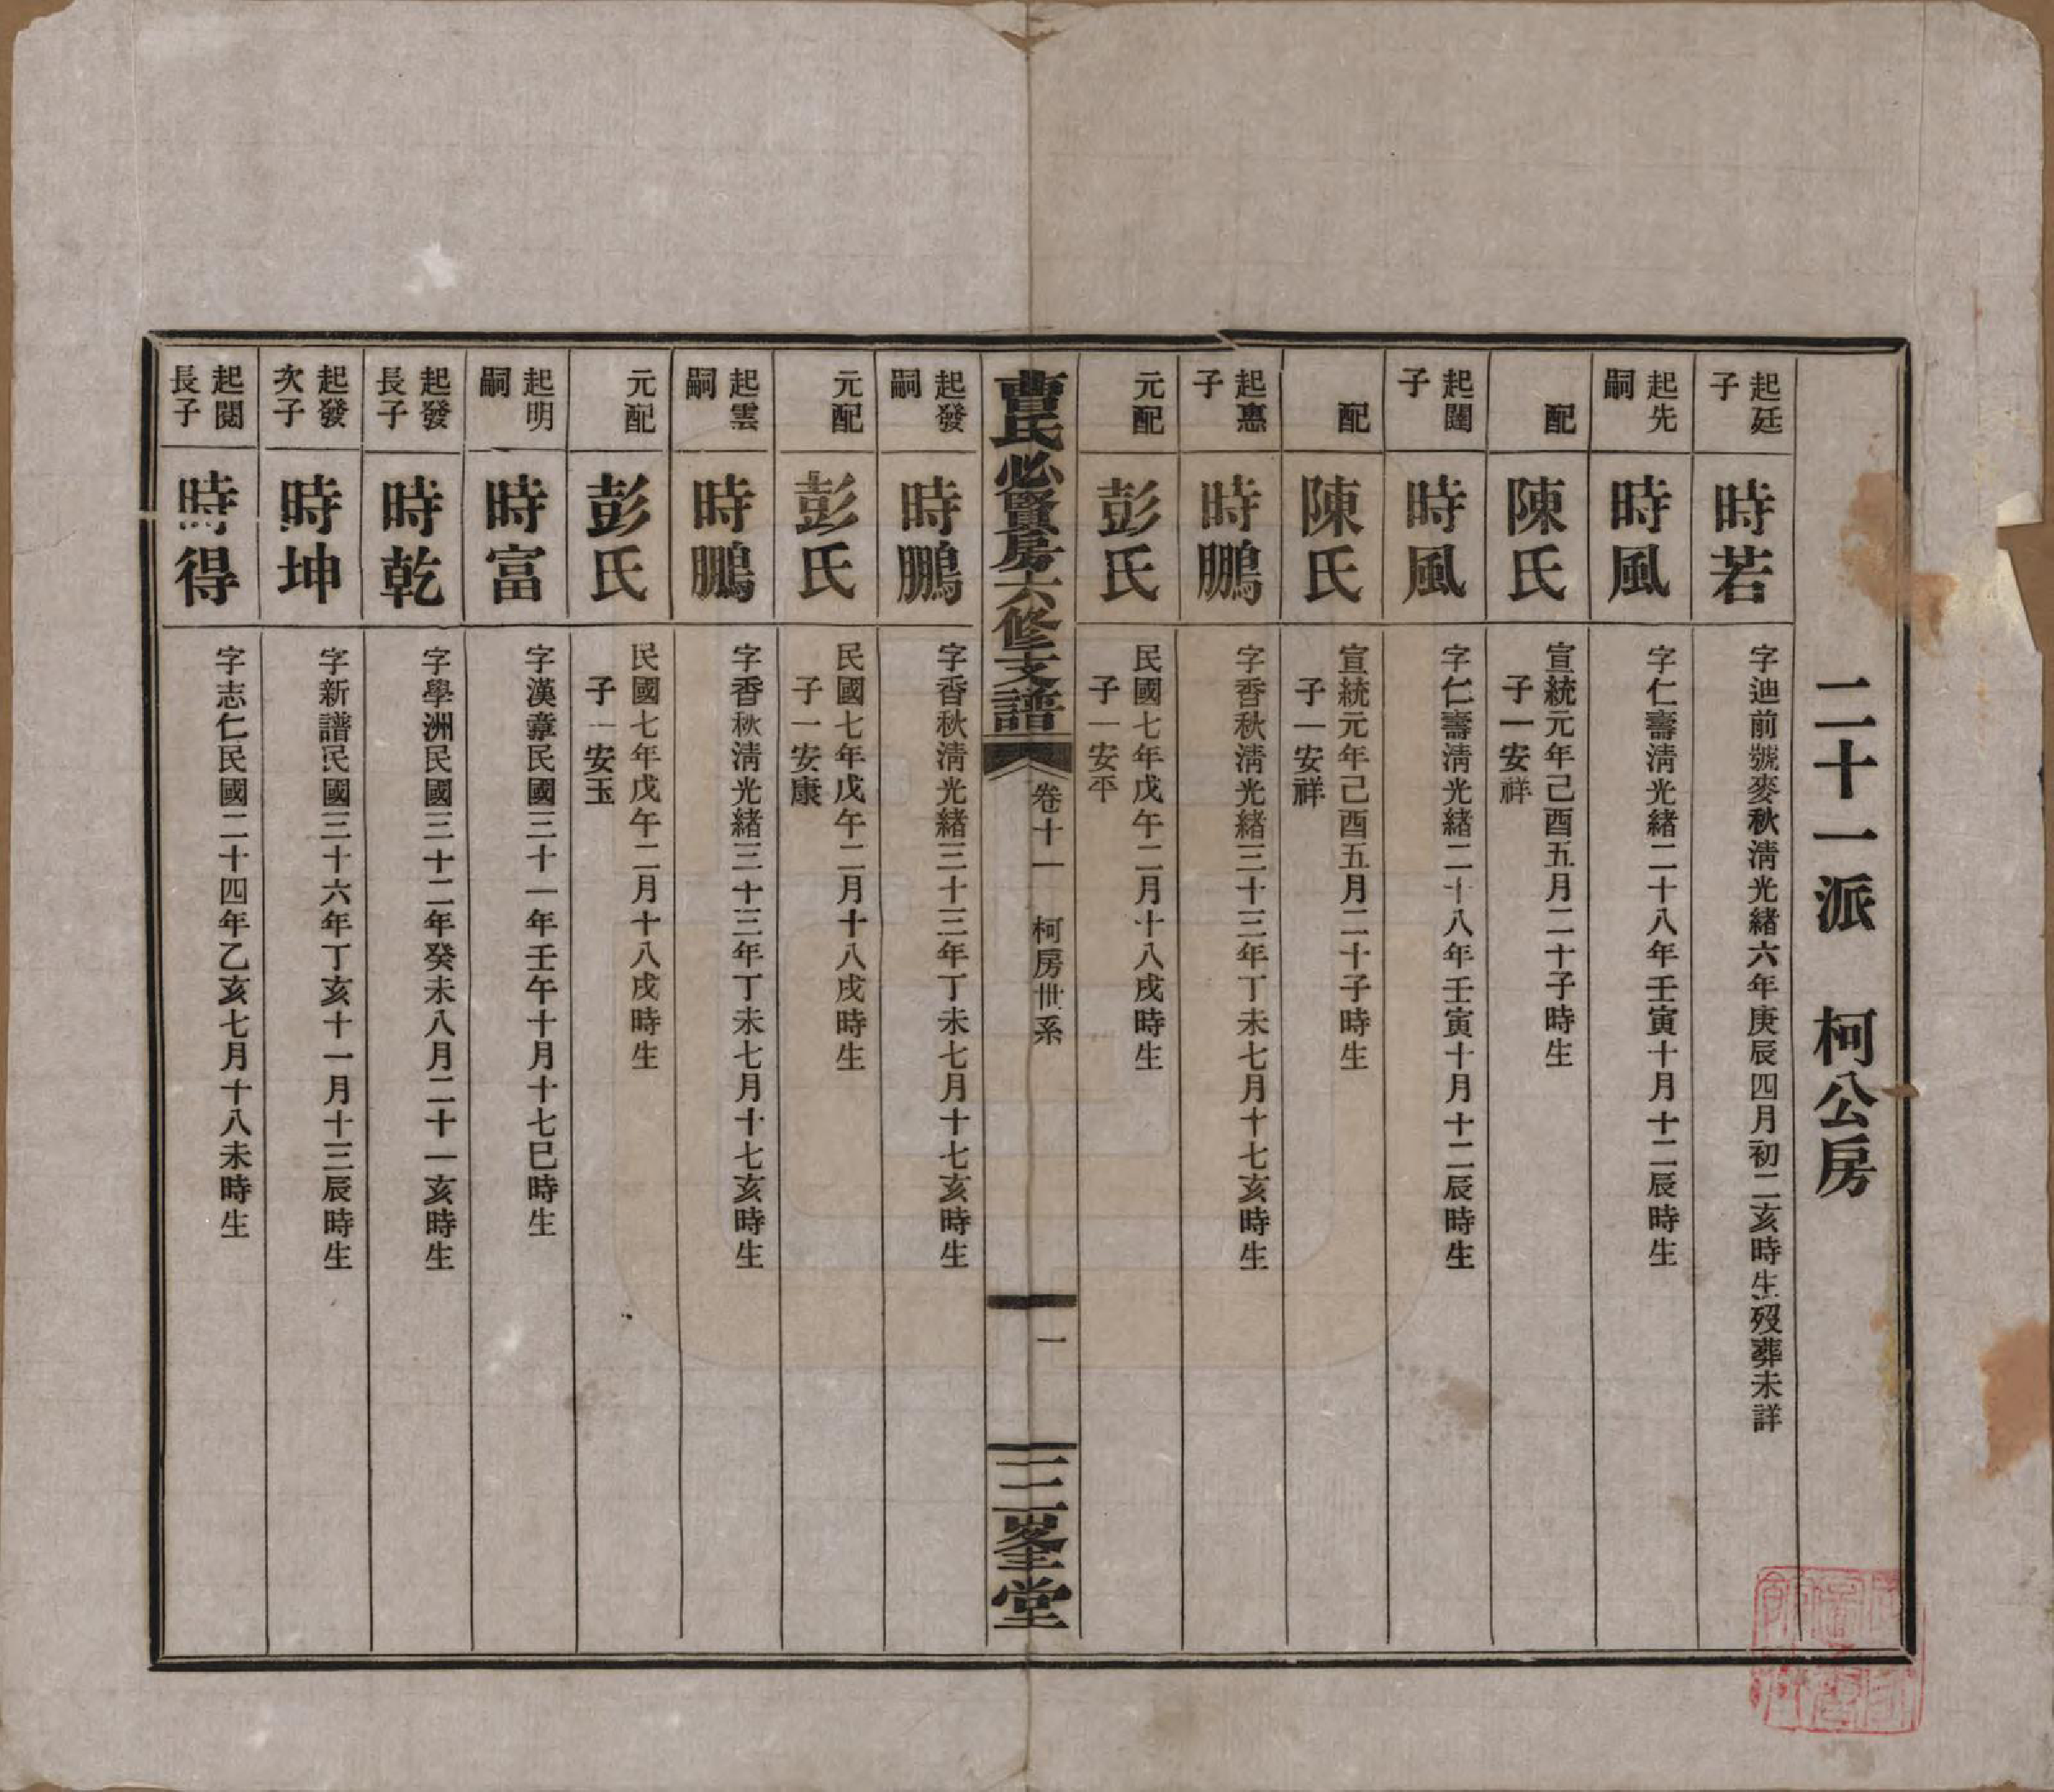 二十一派　柯公房
起廷子
時若
字迪前號麥秋淸光緒六年庚辰四月初二亥時生歿葬未詳
起先嗣
時風
字仁壽淸光緒二十八年壬寅十月十二辰時生
配
陳氏
宣統元年己酉五月二十子時生
子一安祥
起闓子
時風
字仁壽淸光緒二十八年壬寅十月十二辰時生
配
陳氏
宣統元年己酉五月二十子時生
子一安祥
起惠子
時鵬
字香秋淸光緒三十三年丁未七月十七亥時生
元配
彭氏
民國七年戊午二月十八戌時生
子一安平
曹氏必賢房六修支譜
卷十一　柯房世系
一
三畏堂
起發嗣
時鵬
字香秋淸光緒三十三年丁未七月十七亥時生
元配
彭氏
民國七年戊午二月十八戌時生
子一安康
起雲嗣
時鵬
字香秋淸光緒三十三年丁未七月十七亥時生
元配
彭氏
民國七年戊午二月十八戌時生
子一安玉
起明嗣
時富
字漢章民國三十一年壬午十月十七巳時生
起發長子
時乾
字學洲民國三十二年癸未八月二十一亥時生
起發次子
時坤
字新譜民國三十六年丁亥十一月十三辰時生
起閱長子
時得
字志仁民國二十四年乙亥七月十八未時生